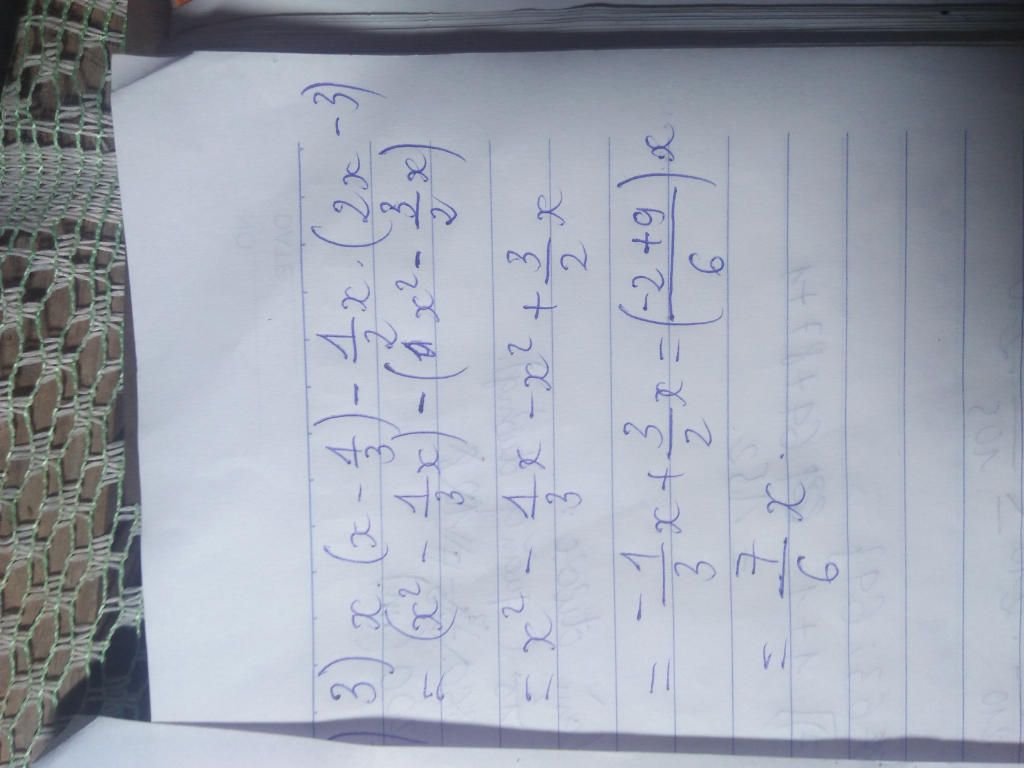 3) x · (x - 1/3) - 1/2 x · (2x - 3)
= (x² - 1/3 x) - (x² - 3/2 x)
= x² - 1/3 x - x² + 3/2 x
= -1/3 x + 3/2 x = ((-2 + 9)/6) x
= 7/6 x.